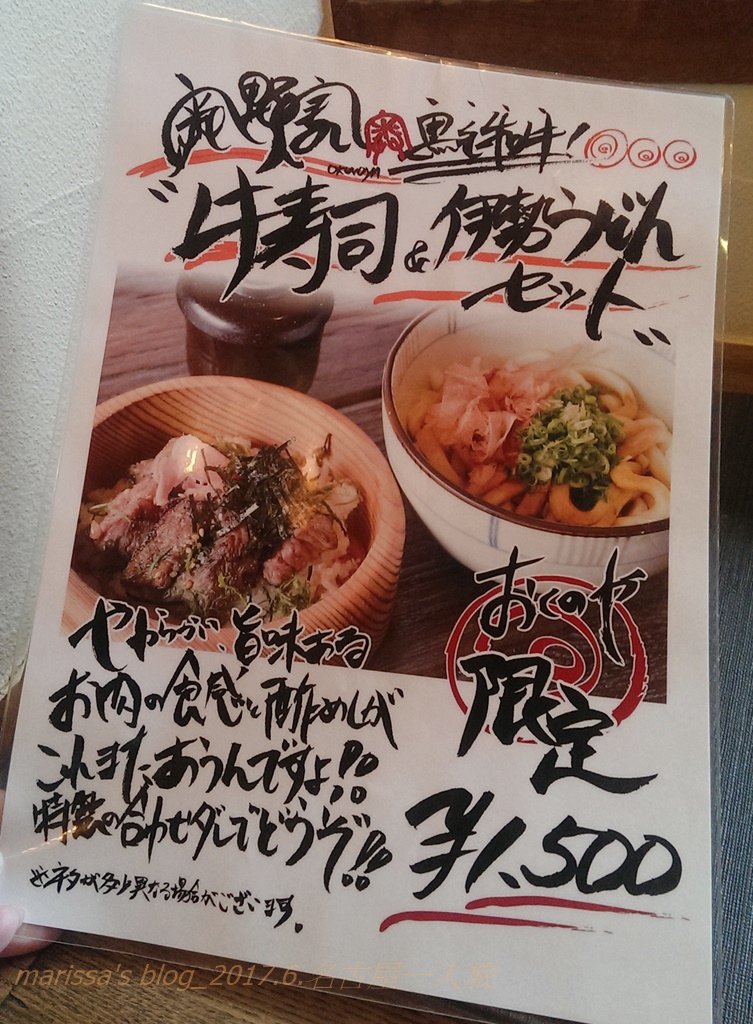 奥野家 黒毛和牛!
OKUNOYA
"牛寿司&伊勢うどん
セット"
おくのや
限定
¥1,500
やわらかい、旨味ある
お肉の食感と酢めしが
これまた、おうんですよ!!
特製の合わせダレでどうぞ!!
※ネタは多少異なる場合がございます。
marissa's blog_2017.6.名古屋